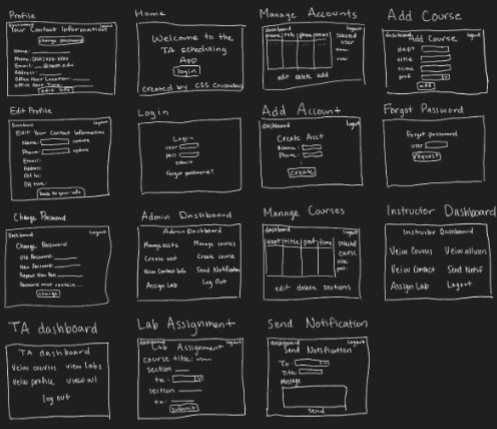 Profile
Dashboard Logout
Your Contact Information
change password
Name:
Phone:
Email:
Address:
Office Hour Location:
Office Hour Time:
edit info
Home
Welcome to the
TA scheduling
App
login
created by CSS Crusaders
Manage Accounts
dashboard logout
name role phone
selected
user
edit delete add
Add Course
dashboard logout
Add Course
dept
title
time
prof
add
Edit Profile
Dashboard Logout
Edit Your Contact Information
Name: update
Phone: update
Email:
Address:
back to your info
Login
Login
user
pass
submit
forgot password?
Add Account
dashboard logout
Create Acct
Name:
Phone:
create
Forgot Password
Forgot password
user
request
Change Password
Dashboard Logout
Change Password
Old Password:
New Password:
Repeat New Pass:
Password must contain...
change
Admin Dashboard
Admin Dashboard
Manage accts Manage courses
Create acct Create course
View Contact Info Send Notification
Assign Lab Log Out
Manage Courses
dashboard logout
dept title prof time
selected
edit delete sections
Instructor Dashboard
Instructor Dashboard
Veiw Courses
Veiw Contact Send Notif
Assign Lab Logout
TA dashboard
TA dashboard
Veiw courses view labs
Veiw profile
log out
Lab Assignment
dashboard logout
Lab Assignment
course title:
section
ta:
section
ta:
submit
Send Notification
dashboard logout
Send Notification
To:
Title:
Message
send